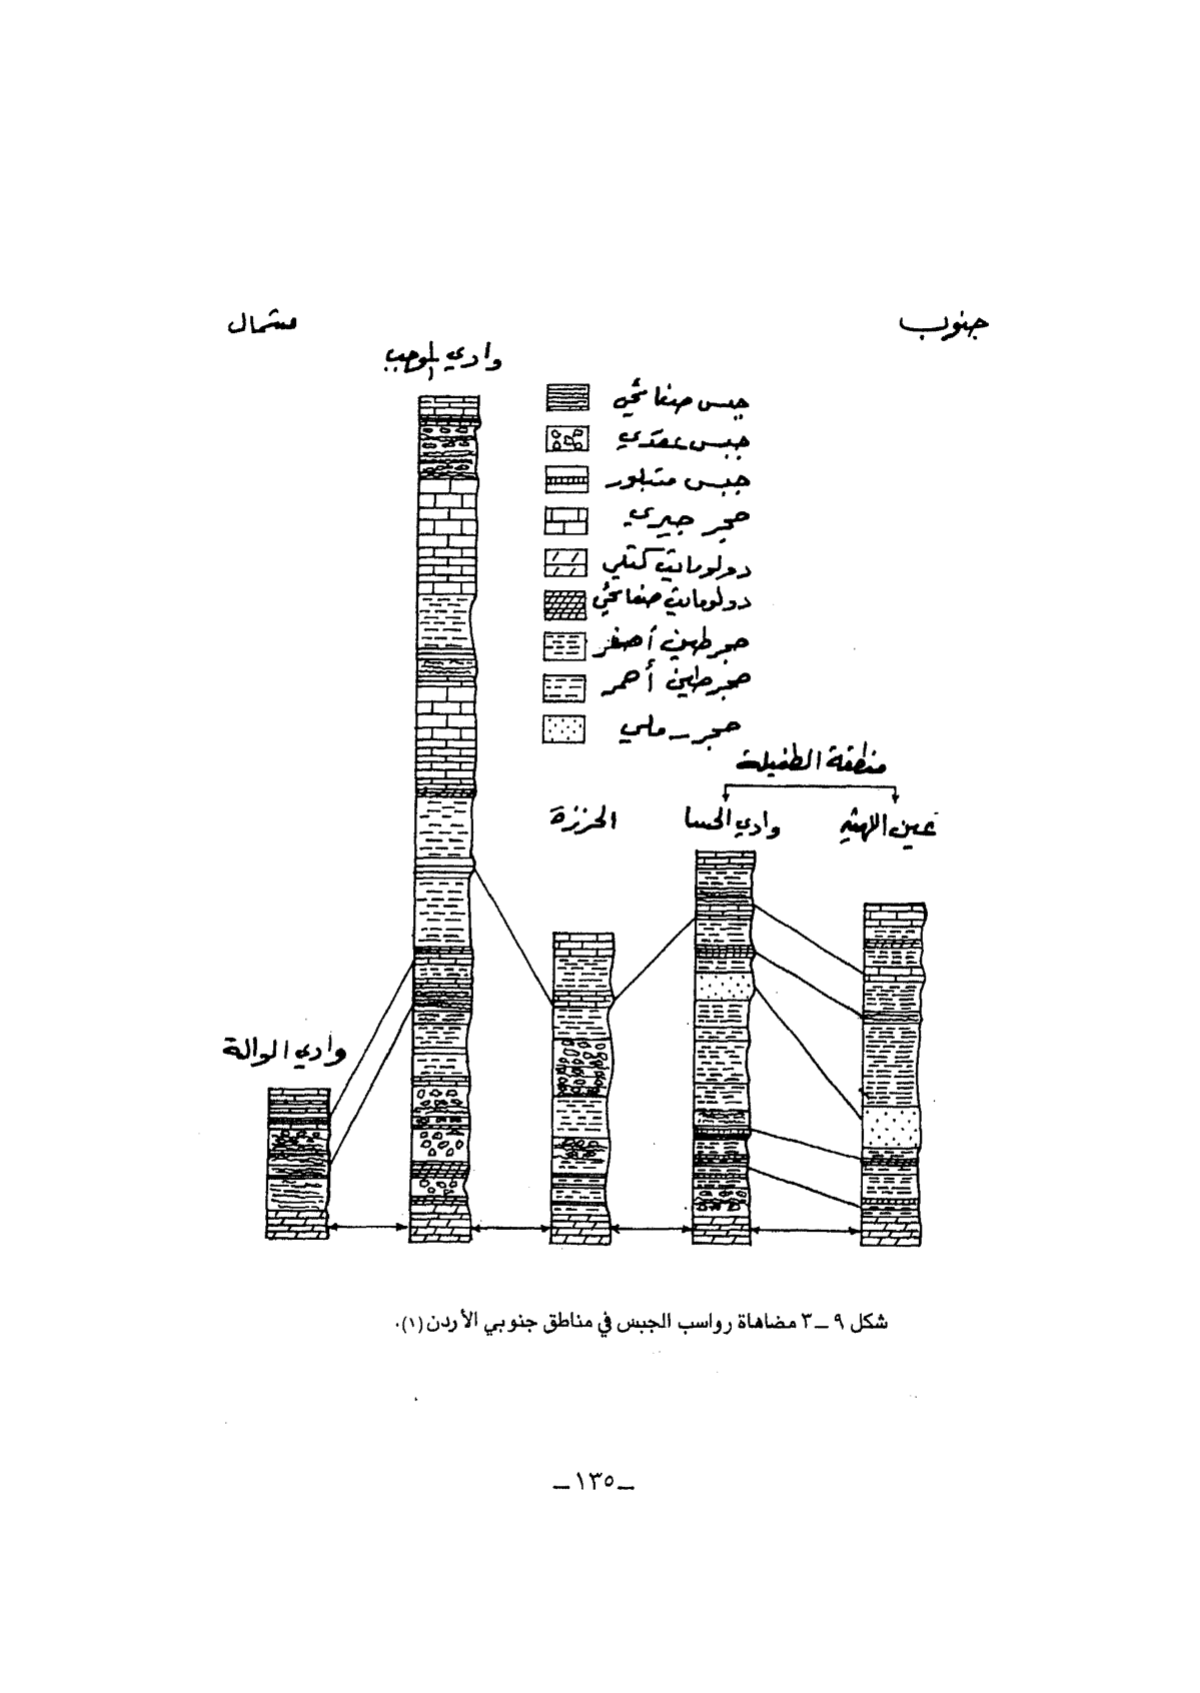 جنوب
شمال
وادي الموجب
جبس صفائحي
جبس عقدي
جبس متبلور
حجر جيري
دولومايت كتلي
دولومايت صفائحي
حجر طين أصفر
حجر طين أحمر
حجر رملي
منطقة الطفيلة
عين اللهثه
وادي الحسا
الحرزة
وادي الوالة
شكل ٩ – ٣ مضاهاة رواسب الجبس في مناطق جنوبي الأردن (١).
– ١٣٥ –